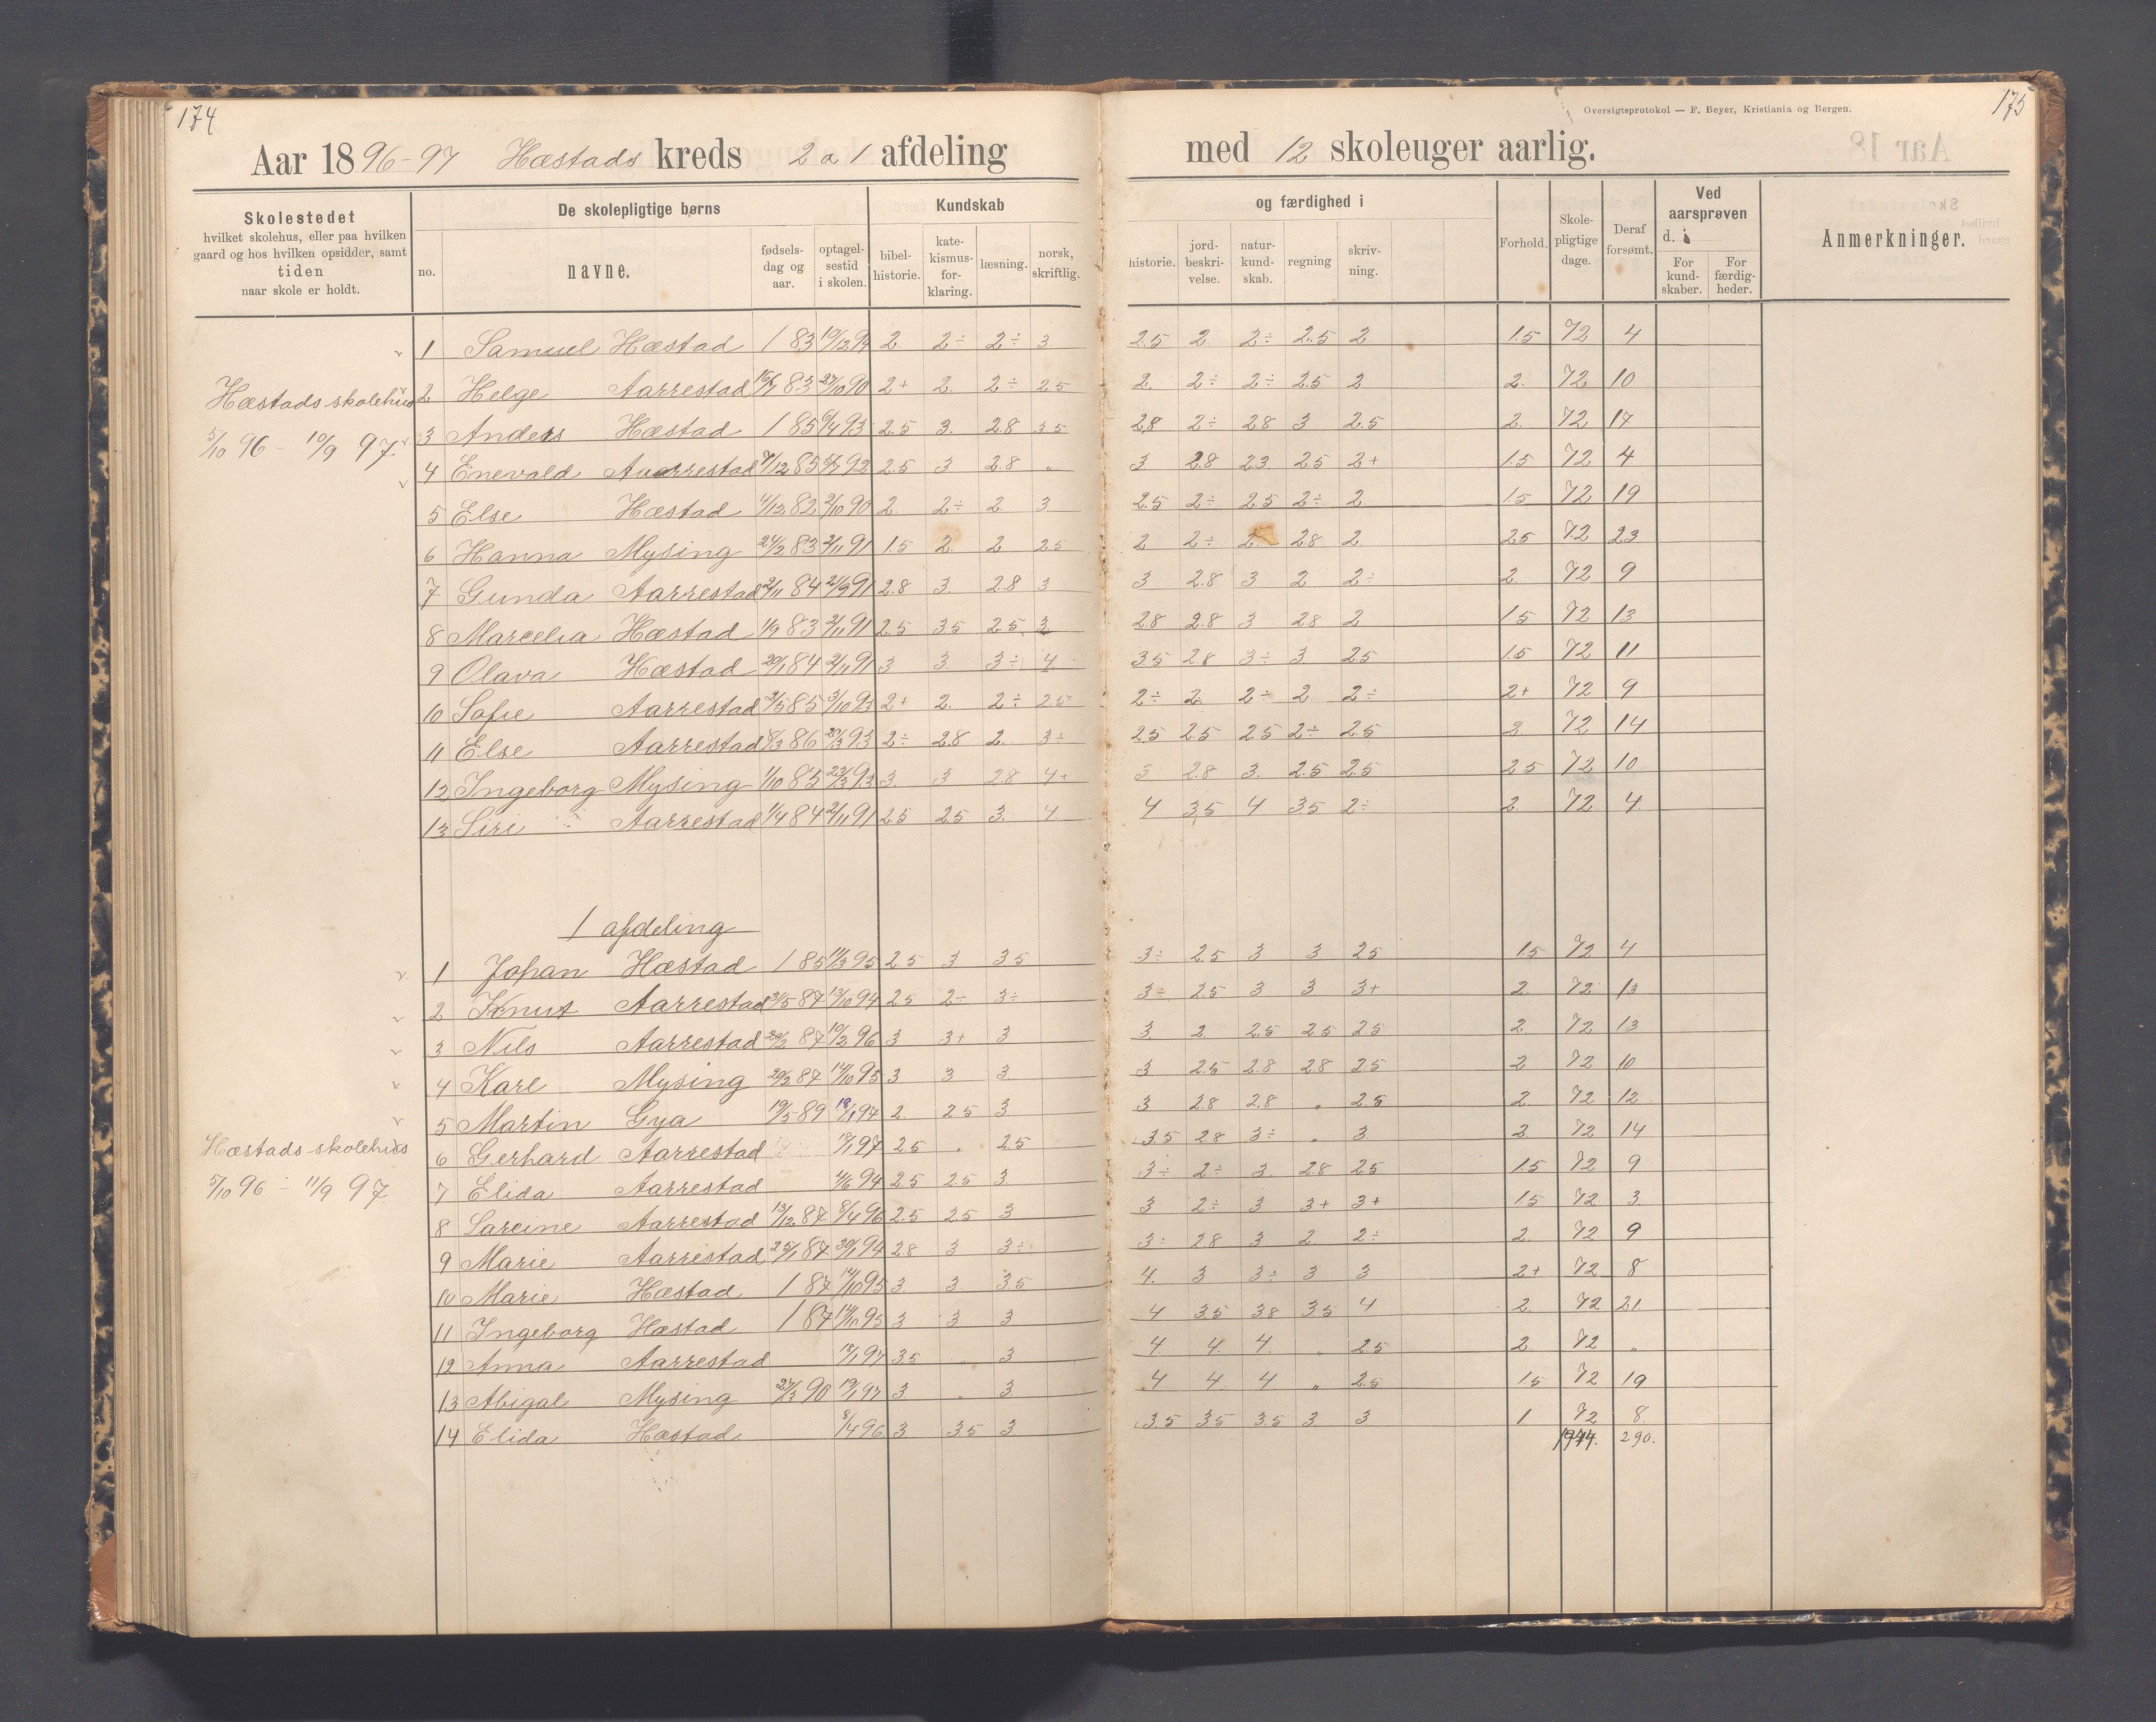 174
Aar 1896-97 Hæstads kreds 2 a 1 afdeling
Skolestedet
hvilket skolehus, eller paa hvilken
gaard og hos hvilken opsidder, samt
tiden
naar skole er holdt.
De skolepligtige børns
no.
navne.
fødsels-
dag og
aar.
optagel-
sestid
i skolen.
Kundskab
bibel-
historie.
kate-
kismus-
for-
klaring.
læsning.
norsk,
skriftlig.
1 Samuel Hæstad 1 83 10/12 94 2 2÷ 2÷ 3
Hæstads skolehus
5/10 96 - 10/9 97
2 Helge Aarrestad 16/7 83 27/10 90 2+ 2 2÷ 2.5
3 Anders Hæstad 1 85 6/4 93 2.5 3. 2.8 3.5
4 Enevald Aarrestad 7/12 85 92 2.5 3 2.8 "
5 Else Hæstad 4/12 82 2/10 90 2 2÷ 2 3
6 Hanna Mysing 24/2 83 2/11 91 1.5 2 2 2.5
7 Gunda Aarrestad 2/11 84 21/9 91 2.8 3. 2.8 3
8 Marcelia Hæstad 1/9 83 2/11 91 2.5 3.5 2.5 3
9 Olava Hæstad 20/1 84 2/11 91 3 3 3÷ 4
10 Sofie Aarrestad 2/5 85 3/10 93 2+ 2. 2÷ 2.5
11 Else Aarrestad 8/3 86 20/3 93 2÷ 2.8 2. 3÷
12 Ingeborg Mysing 1/10 85 23/3 93 3. 3 2.8 4+
13 Siri Aarrestad 1/4 84 2/11 91 2.5 2.5 3. 4
1 afdeling
1 Johan Hæstad 1 85 11/3 95 2.5 3 3.5
2 Knut Aarrestad 31/5 87 13/10 94 2.5 2÷ 3÷
3 Nils Aarrestad 20/2 87 10/2 96 3 3+ 3
4 Karl Mysing 20/3 87 14/10 95 3 3 3
5 Martin Gya 19/5 89 18/1 97 2 2.5 3
Hæstads skolehus
5/10 96 - 11/9 97.
6 Gerhard Aarrestad 18/1 97 2.5 " 2.5
7 Elida Aarrestad 4/6 94 2.5 2.5 3
8 Sareine Aarrestad 13/12 87 8/4 96 2.5 2.5 3
9 Marie Aarrestad 25/1 87 30/1 94 2.8 3 3÷
10 Marie Hæstad 1 87 14/10 95 3. 3 3.5
11 Ingeborg Hæstad 1 87 14/10 95 3 3 3
12 Anna Aarrestad 18/1 97 3.5 " 3
13 Abigal Mysing 27/3 90 19/1 97 3 " 3
14 Elida Hæstad 8/4 96 3 3.5 3
175
Oversigtsprotokol — F. Beyer, Kristiania og Bergen.
med 12 skoleuger aarlig.
og færdighed i
historie.
jord-
beskri-
velse.
natur-
kund-
skab.
regning
skriv-
ning.
Forhold.
Skole-
pligtige
dage.
Deraf
forsømt.
Ved
aarsprøven
d.
For
kund-
skaber.
For
færdig-
heder.
Anmerkninger.
2.5 2 2÷ 2.5 2 1.5 72 4
2. 2÷ 2÷ 2.5 2 2. 72 10
2.8 2÷ 2.8 3 2.5 2. 72 17
3 2.8 2.3 2.5 2+ 1.5 72 4
2.5 2÷ 2.5 2÷ 2 1.5 72 19
2 2÷ 2 2.8 2 2.5 72 23
3 2.8 3 2 2÷ 2 72 9
2.8 2.8 3 2.8 2 1.5 72 13
3.5 2.8 3÷ 3 2.5 1.5 72 11
2÷ 2 2÷ 2 2÷ 2+ 72 9
2.5 2.5 2.5 2÷ 2.5 2 72 14
3 2.8 3. 2.5 2.5 2.5 72 10
4 3.5 4 3.5 2÷ 2. 72 4
3÷ 2.5 3 3 2.5 1.5 72 4
3÷ 2.5 3 3 3+ 2. 72 13
3 2 2.5 2.5 2.5 2. 72 13
3 2.5 2.8 2.8 2.5 2 72 10
3 2.8 2.8 " 2.5 2 72 12
3.5 2.8 3÷ " 3 2 72 14
3÷ 2÷ 3 2.8 2.5 1.5 72 9
3 2÷ 3 3+ 3+ 1.5 72 3
3÷ 2.8 3 2 2÷ 2. 72 9
4. 3 3÷ 3 3 2+ 72 8
4 3.5 3.8 3.5 4 2. 72 21
4 4. 4. " 2.5 2 72 "
4 4 4 " 2.5 1.5 72 19
3.5 3.5 3.5 3 3 1 72 8
1944. 290.